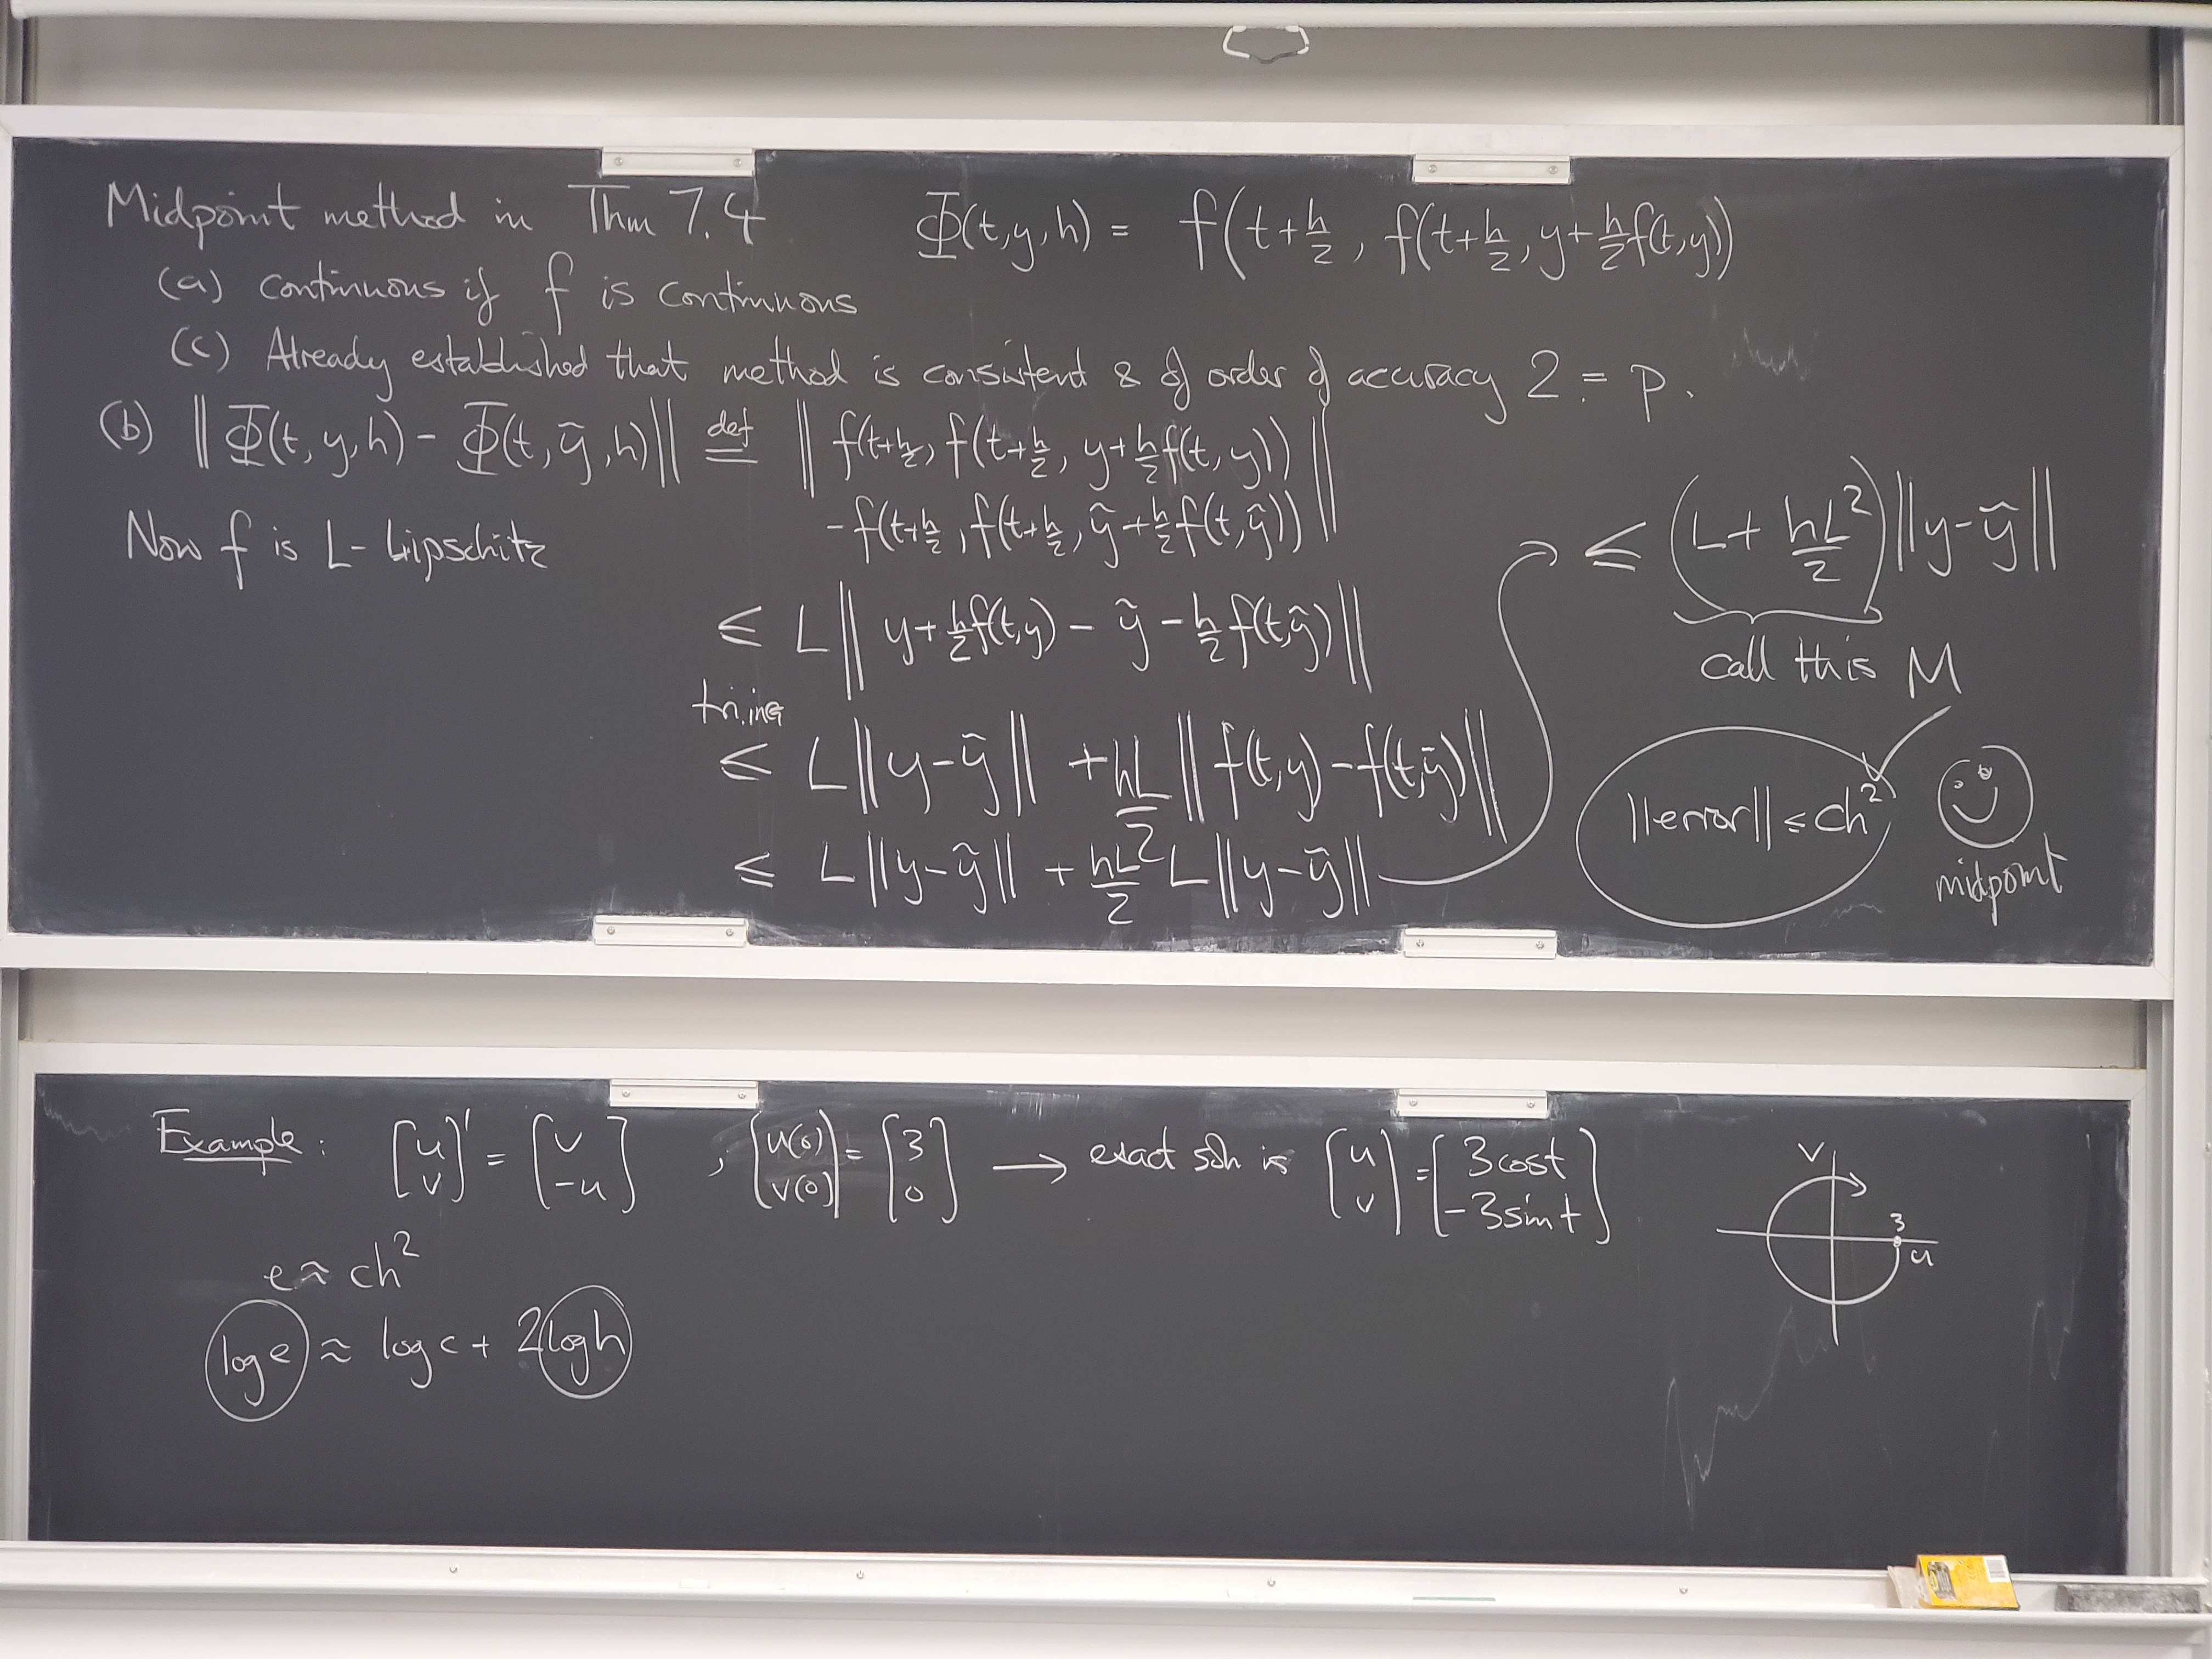 Midpoint method in Thm 7.4 Φ(t,y,h) = f(t+h/2, f(t+h/2, y+h/2 f(t,y))
(a) continuous if f is continuous
(c) Already established that method is consistent & of order of accuracy 2 = p.
(b) ||Φ(t,y,h) - Φ(t,ỹ,h)|| def= || f(t+h/2, f(t+h/2, y+h/2 f(t,y))
- f(t+h/2, f(t+h/2, ỹ+h/2 f(t,ỹ)) ||
Now f is L-Lipschitz
≤ L|| y+h/2 f(t,y) - ỹ - h/2 f(t,ỹ) ||
tri.ineq
≤ L||y-ỹ|| + hL/2 || f(t,y) - f(t,ỹ) ||
≤ L||y-ỹ|| + hL/2 L||y-ỹ||
≤ (L + hL²/2) ||y-ỹ||
call this M
||error|| ≤ ch²
midpoint
Example: [u v]' = [v -u] , [u(0) v(0)] = [3 0] → exact soln is [u v] = [3cost -3sint]
v
3
u
e ≈ ch²
log e ≈ log c + 2 log h